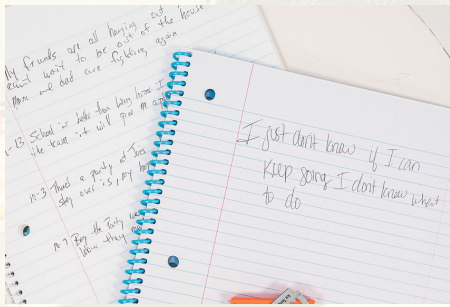 My friends are all hanging out
can't wait to be out of the house
Mom and dad are fighting again
School is better than being home. I
the team it will give m
10-3 There's a party at Joes
stay over is, my
10-7 Boy the Party was
I just dont know if I can
Keep going I dont know what
to do